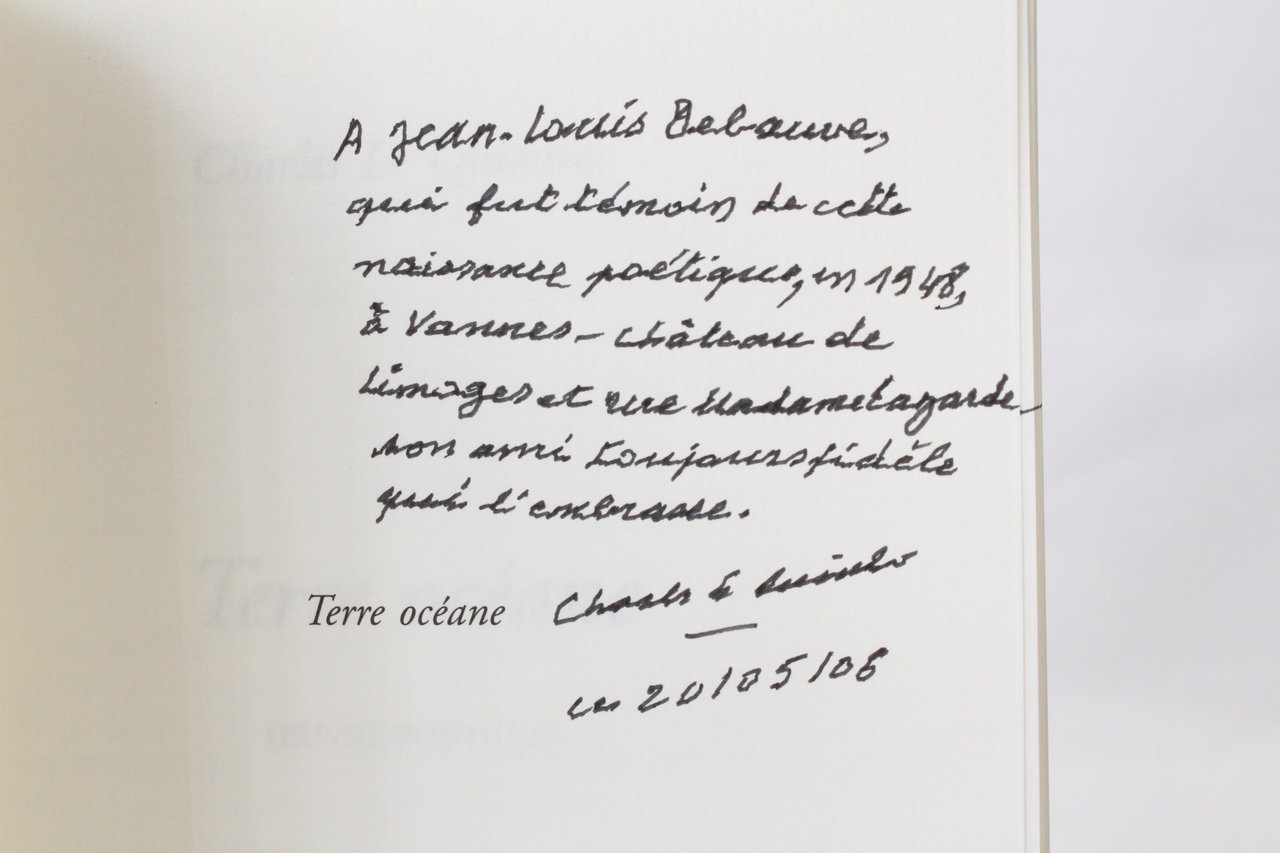 A Jean-Louis Debauve,
qui fut témoin de cette
naissance poétique, en 1948,
à Vannes - château de
Limoges et rue Madame Lagarde
son ami toujours fidèle
qui l'embrasse.
Charles Le Quintrec
Terre océane
ce 20/05/06